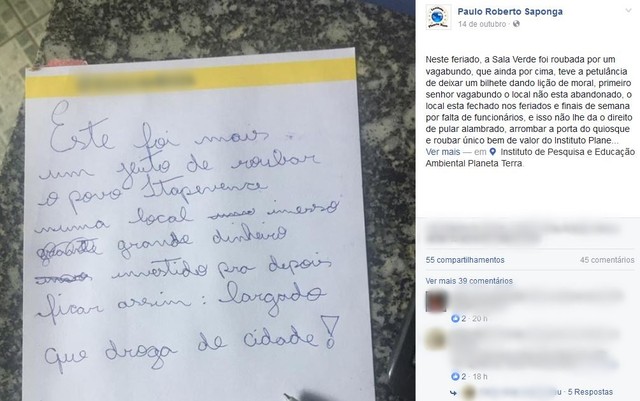 Este foi mais
um jeito de roubar
o povo Itapevence
numa local imerso
grande dinheiro
investido pra depois
ficar assim: largado
que droga de cidade!
Paulo Roberto Saponga
14 de outubro ·
Neste feriado, a Sala Verde foi roubada por um
vagabundo, que ainda por cima, teve a petulância
de deixar um bilhete dando lição de moral, primeiro
senhor vagabundo o local não esta abandonado, o
local esta fechado nos feriados e finais de semana
por falta de funcionários, e isso não lhe da o direito
de pular alambrado, arrombar a porta do quiosque
e roubar único bem de valor do Instituto Plane...
Ver mais — em Instituto de Pesquisa e Educação
Ambiental Planeta Terra.
55 compartilhamentos 45 comentários
Ver mais 39 comentários
2 · 20 h
2 · 18 h
5 Respostas